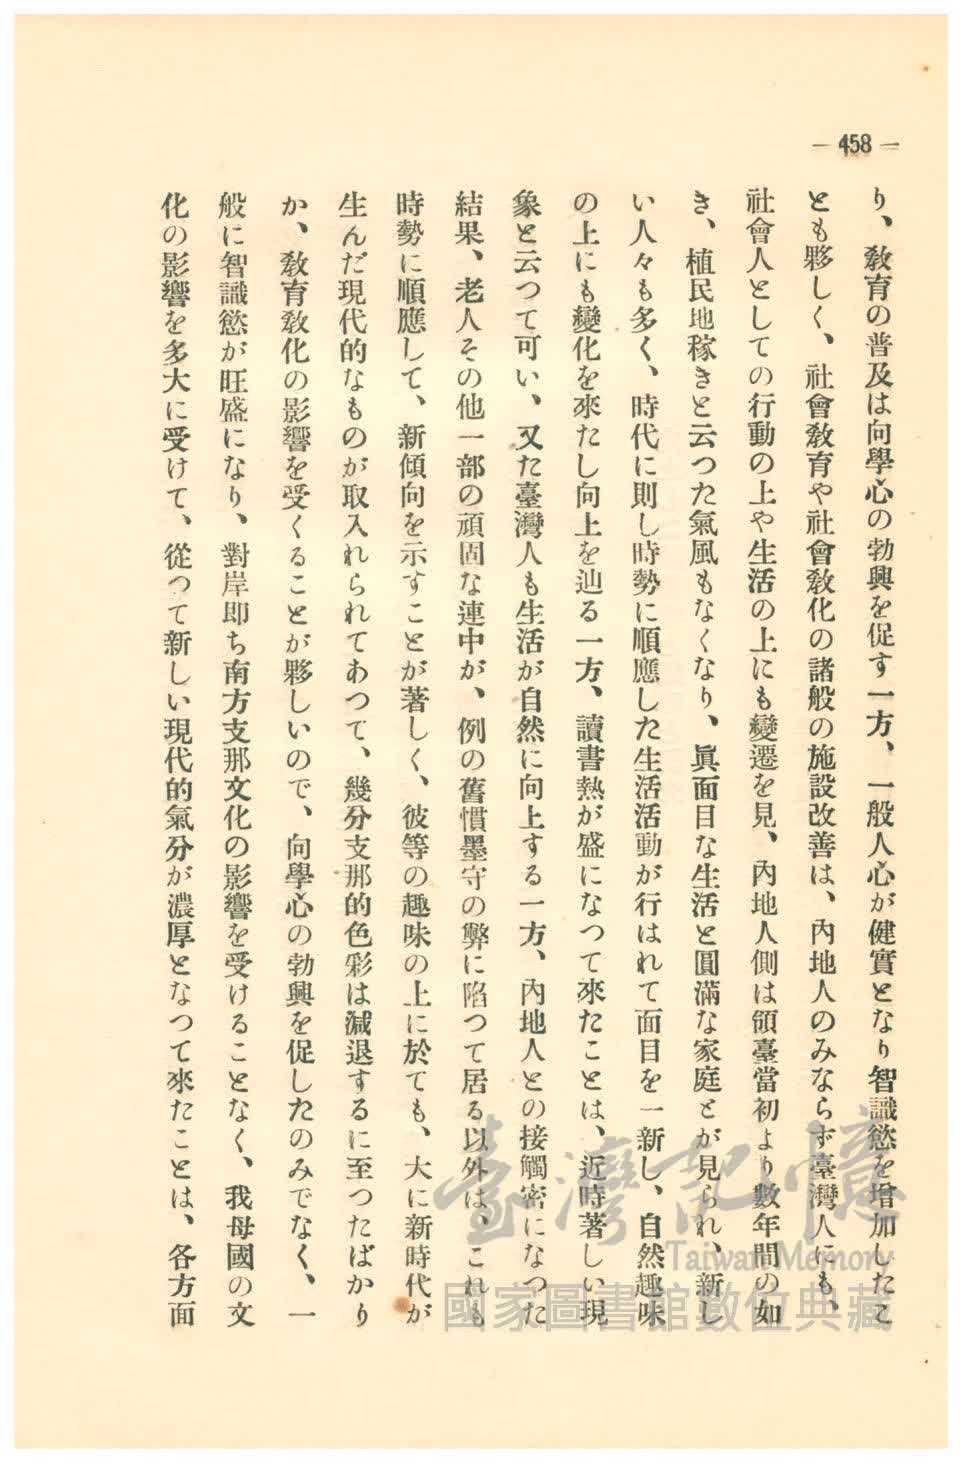 — 458 —
り、敎育の普及は向學心の勃興を促す一方、一般人心が健實となり智識慾を增加したこ
とも夥しく、社會敎育や社會敎化の諸般の施設改善は、內地人のみならず臺灣人にも、
社會人としての行動の上や生活の上にも變遷を見、內地人側は領臺當初より數年間の如
き、植民地稼きと云つた氣風もなくなり、眞面目な生活と圓滿な家庭とが見られ、新し
い人々も多く、時代に則し時勢に順應した生活活動が行はれて面目を一新し、自然趣味
の上にも變化を來たし向上を辿る一方、讀書熱が盛になつて來たことは、近時著しい現
象と云つて可い、又た臺灣人も生活が自然に向上する一方、內地人との接觸密になつた
結果、老人その他一部の頑固な連中が、例の舊慣墨守の弊に陷つて居る以外は、これも
時勢に順應して、新傾向を示すことが著しく、彼等の趣味の上に於ても、大に新時代が
生んだ現代的なものが取入れられてあつて、幾分支那的色彩は減退するに至つたばかり
か、敎育敎化の影響を受くることが夥しいので、向學心の勃興を促したのみでなく、一
般に智識慾が旺盛になり、對岸即ち南方支那文化の影響を受けることなく、我母國の文
化の影響を多大に受けて、從つて新しい現代的氣分が濃厚となつて來たことは、各方面
臺灣記憶
Taiwan Memory
國家圖書館數位典藏